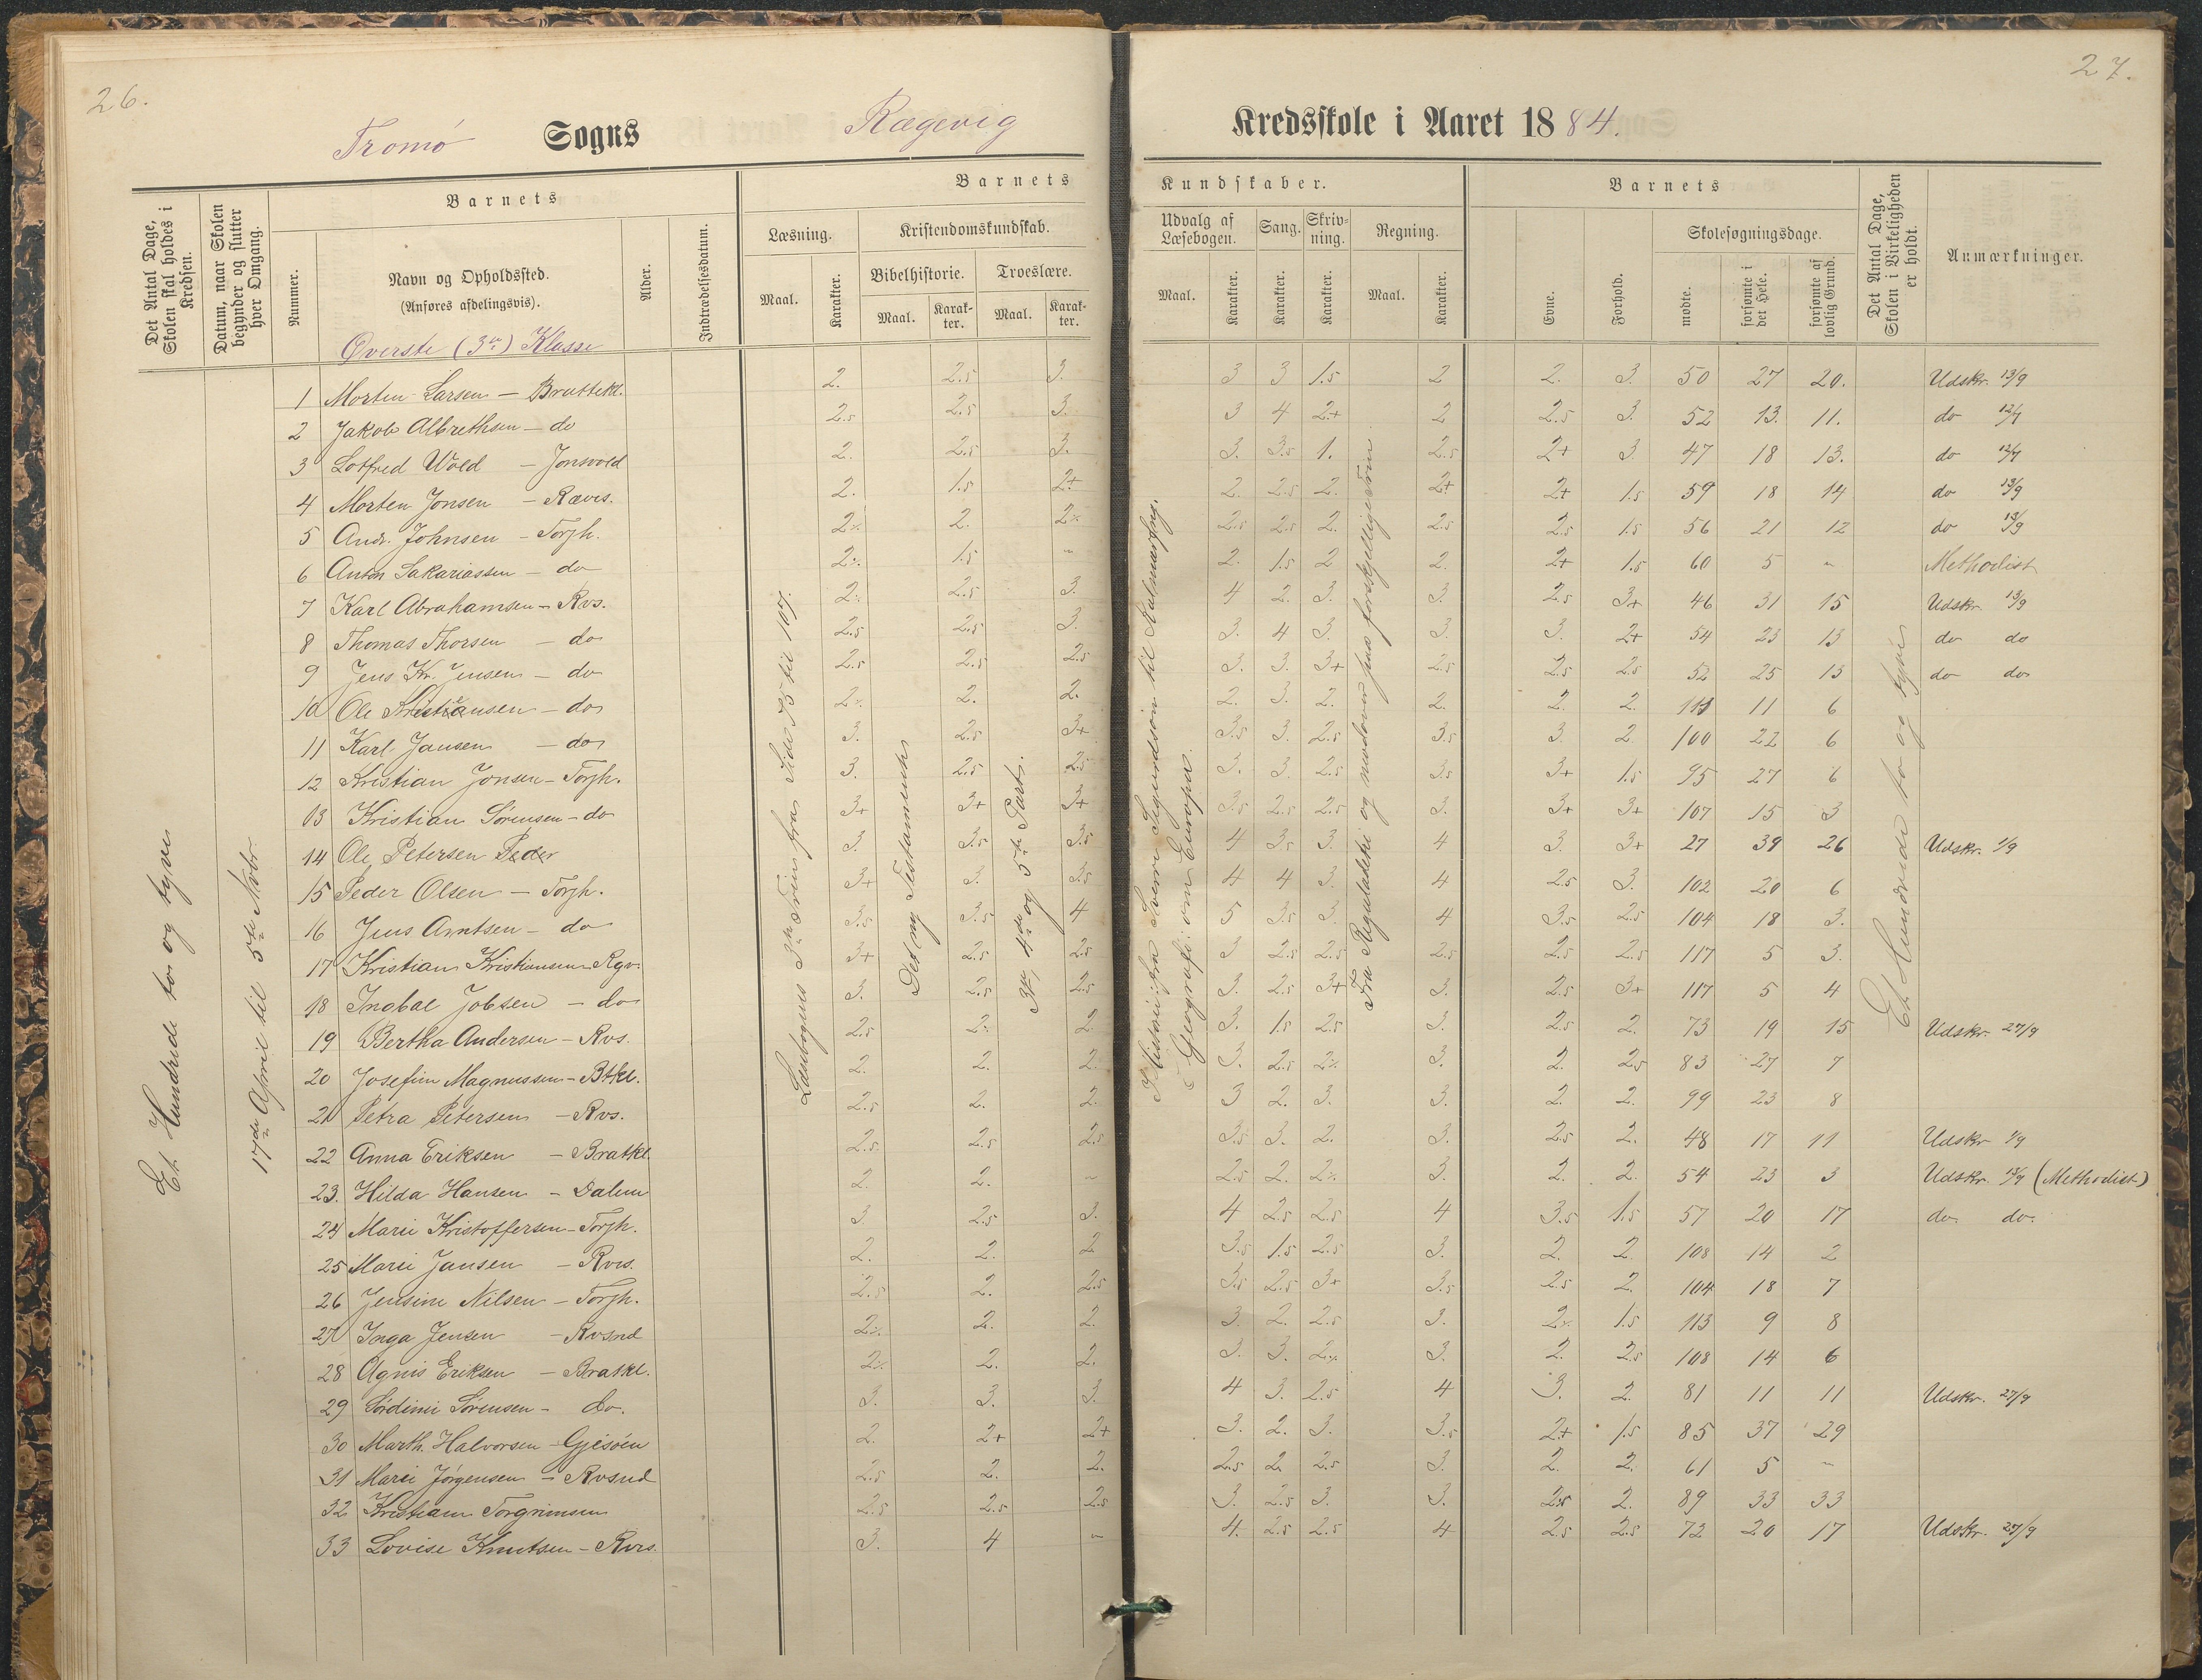 26.
Tromø Sogns Rægevig
Det Antal Dage, Skolen skal holdes i Kredsen.
Datum, naar Skolen begynder og slutter hver Omgang.
Barnets
Nummer.
Navn og Opholdssted.
(Anføres afdelingsvis).
Alder.
Indtrædelsesdatum.
Barnets
Læsning.
Maal.
Karakter.
Kristendomskundskab.
Bibelhistorie.
Maal.
Karakter.
Troeslære.
Maal.
Karakter.
Øverste (3die) Klasse
Et Hundrede to og tyve
17de April til 5te Nvbr.
Det ny Testamente
3die, 4de og 5te Part.
1 Morten Larsen — Brattekl. 2. 2.5 3.
2 Jakob Albrethsen — do 2.5 2.5 3.
3 Lotfred Wold — Jonsvold 2. 2.5 3.
4 Morten Jonsen — Rævs. 2. 1.5 2+
5 Andr. Johnsen — Torjh. 2÷ 2. 2÷
6 Anton Sakariassen — do 2÷ 1.5 "
7 Karl Abrahamsen — Rvs. 2÷ 2.5 3.
8 Thomas Thorsen — do 2.5 2.5 3.
9 Jens Kr. Jensen — do 2.5 2.5 2.5
10 Ole Kristiansen — do 2÷ 2. 2.
11 Karl Jansen — do 3. 2.5 3+
12 Kristian Jonsen — Torjh. 3. 2.5 2.5
13 Kristian Sørensen — do 3+ 3+ 3+
14 Ole Petersen 3. 3.5 3.5
15 Peder Olsen — Torjh. 3+ 3. 3.5
16 Jens Arntsen — do 3.5 3.5 4
17 Kristian Kristiansen Rgv. 3+ 2.5 2.5
18 Ingbal Jobsen — do 3. 2.5 2.5
19 Bertha Andersen — Rvs. 2.5 2÷ 2.
20 Josefine Magnussen — Btkl. 2. 2. 2.
21 Petra Petersen — Rvs. 2.5 2. 2.
22 Anna Eriksen — Bratkl. 2.5 2.5 2.5
23. Hilda Hansen — Dalen 2. 2. "
24 Marie Kristoffersen — Torjh. 3. 2.5 3.
25 Marie Jansen — Rvs. 2. 2. 2
26 Jensine Nilsen — Torjh. 2.5 2. 2.5
27 Inga Jensen — Rvsnd 2÷ 2. 2.
28 Agnis Eriksen — Bratkl. 2÷ 2. 2.
29 Sørdine Sørensen — do. 3. 3. 3.
30 Marth. Halvorsen — Gjesøen 2. 2+ 2+
31 Marie Jørgensen — Rvsnd 2.5 2. 2.
32 Kristiane Torgrimsen 2.5 2.5 2.5
33 Lovise Knutsen — Rvs. 3. 4 "
27.
Kredsskole i Aaret 1884.
Kundskaber.
Udvalg af Læsebogen.
Maal.
Karakter.
Sang.
Karakter.
Skrivning.
Karakter.
Regning.
Maal.
Karakter.
Barnets
Evne.
Forhold.
Skolesøgningsdage.
mødte.
forsømte i det Hele.
forsømte af lovlig Grund.
Det Antal Dage, Skolen i Virkeligheden er holdt.
Anmærkninger.
Geografi: om Europa.
Et Hundrede to og tyve
3 3 1.5 2 2. 3. 50 27 20. Udskr. 13/9
3 4 2+ 2 2.5 3. 52 13. 11. do
3. 3.5 1. 2.5 2+ 3 47 18 13. do
2. 2.5 2. 2+ 2+ 1.5 59 18 14 do 13/9
2.5 2.5 2. 2.5 2.5 1.5 56 21 12 do 13/9
2. 1.5 2 2. 2+ 1.5 60 5 " Methodist
4 2. 3. 3. 2.5 3+ 46 31 15 Udskr. 13/9
3. 4 3. 3. 3. 2+ 54 23 13 do do
3. 3. 3+ 2.5 2.5 2.5 52 25 13 do do
2. 3. 2. 2. 2. 2. 11 6
3.5 3. 2.5 3.5 3. 2. 100 22 6
3. 3. 2.5 3.5 3+ 1.5 95 27 6
3.5 2.5 2.5 3. 3+ 3+ 107 15 3
4 3.5 3. 4 3. 3+ 27 39 26 Udskr. 1/9
4 4 3. 4 2.5 3. 102 20 6
5 3.5 3. 4 3.5 2.5 104 18 3.
3 2.5 2.5 2.5 2.5 2.5 117 5 3.
3. 2.5 3+ 3. 2.5 3+ 117 5 4
3. 1.5 2.5 3. 2.5 2. 73 19 15 Udskr. 27/9
3. 2.5 2÷ 3. 2. 2.5 83 27 7
3 2. 3. 3. 2. 2. 99 23 8
3.5 3. 2. 3. 2.5 2. 48 17 11 Udskr 1/9
2.5 2. 2÷ 3. 2. 2. 54 23 3 Udskr. (Methodist)
4 2.5 2.5 4 3.5 1.5 57 20 17 do. do.
3.5 1.5 2.5 3. 2. 2. 108 14 2
3.5 2.5 3+ 3.5 2.5 2. 104 18 7
3. 2. 2.5 3. 2÷ 1.5 113 9 8
3. 3. 2÷ 3. 2. 2.5 108 14 6
4 3. 2.5 4 3. 2. 81 11 11 Udskr. 27/9
3. 2. 3. 3.5 2+ 1.5 85 37 29
2.5 2. 2.5 3. 2. 2. 61 5 "
3. 2.5 3. 3. 2.5 2. 89 33 33
4. 2.5 2.5 4 2.5 2.5 72 20 17 Udskr. 27/9